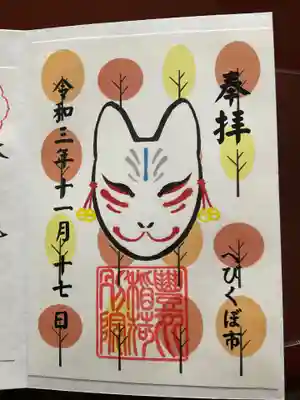 奉拝
へびくぼ市
稲荷
令和三年十一月十七日